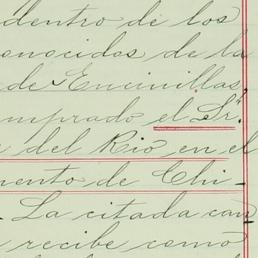 dentro de los
onocidas de la
de Encinillas,
mprado el Sr.
del Rio en el
mento de Chi-
La citada can
recibe como